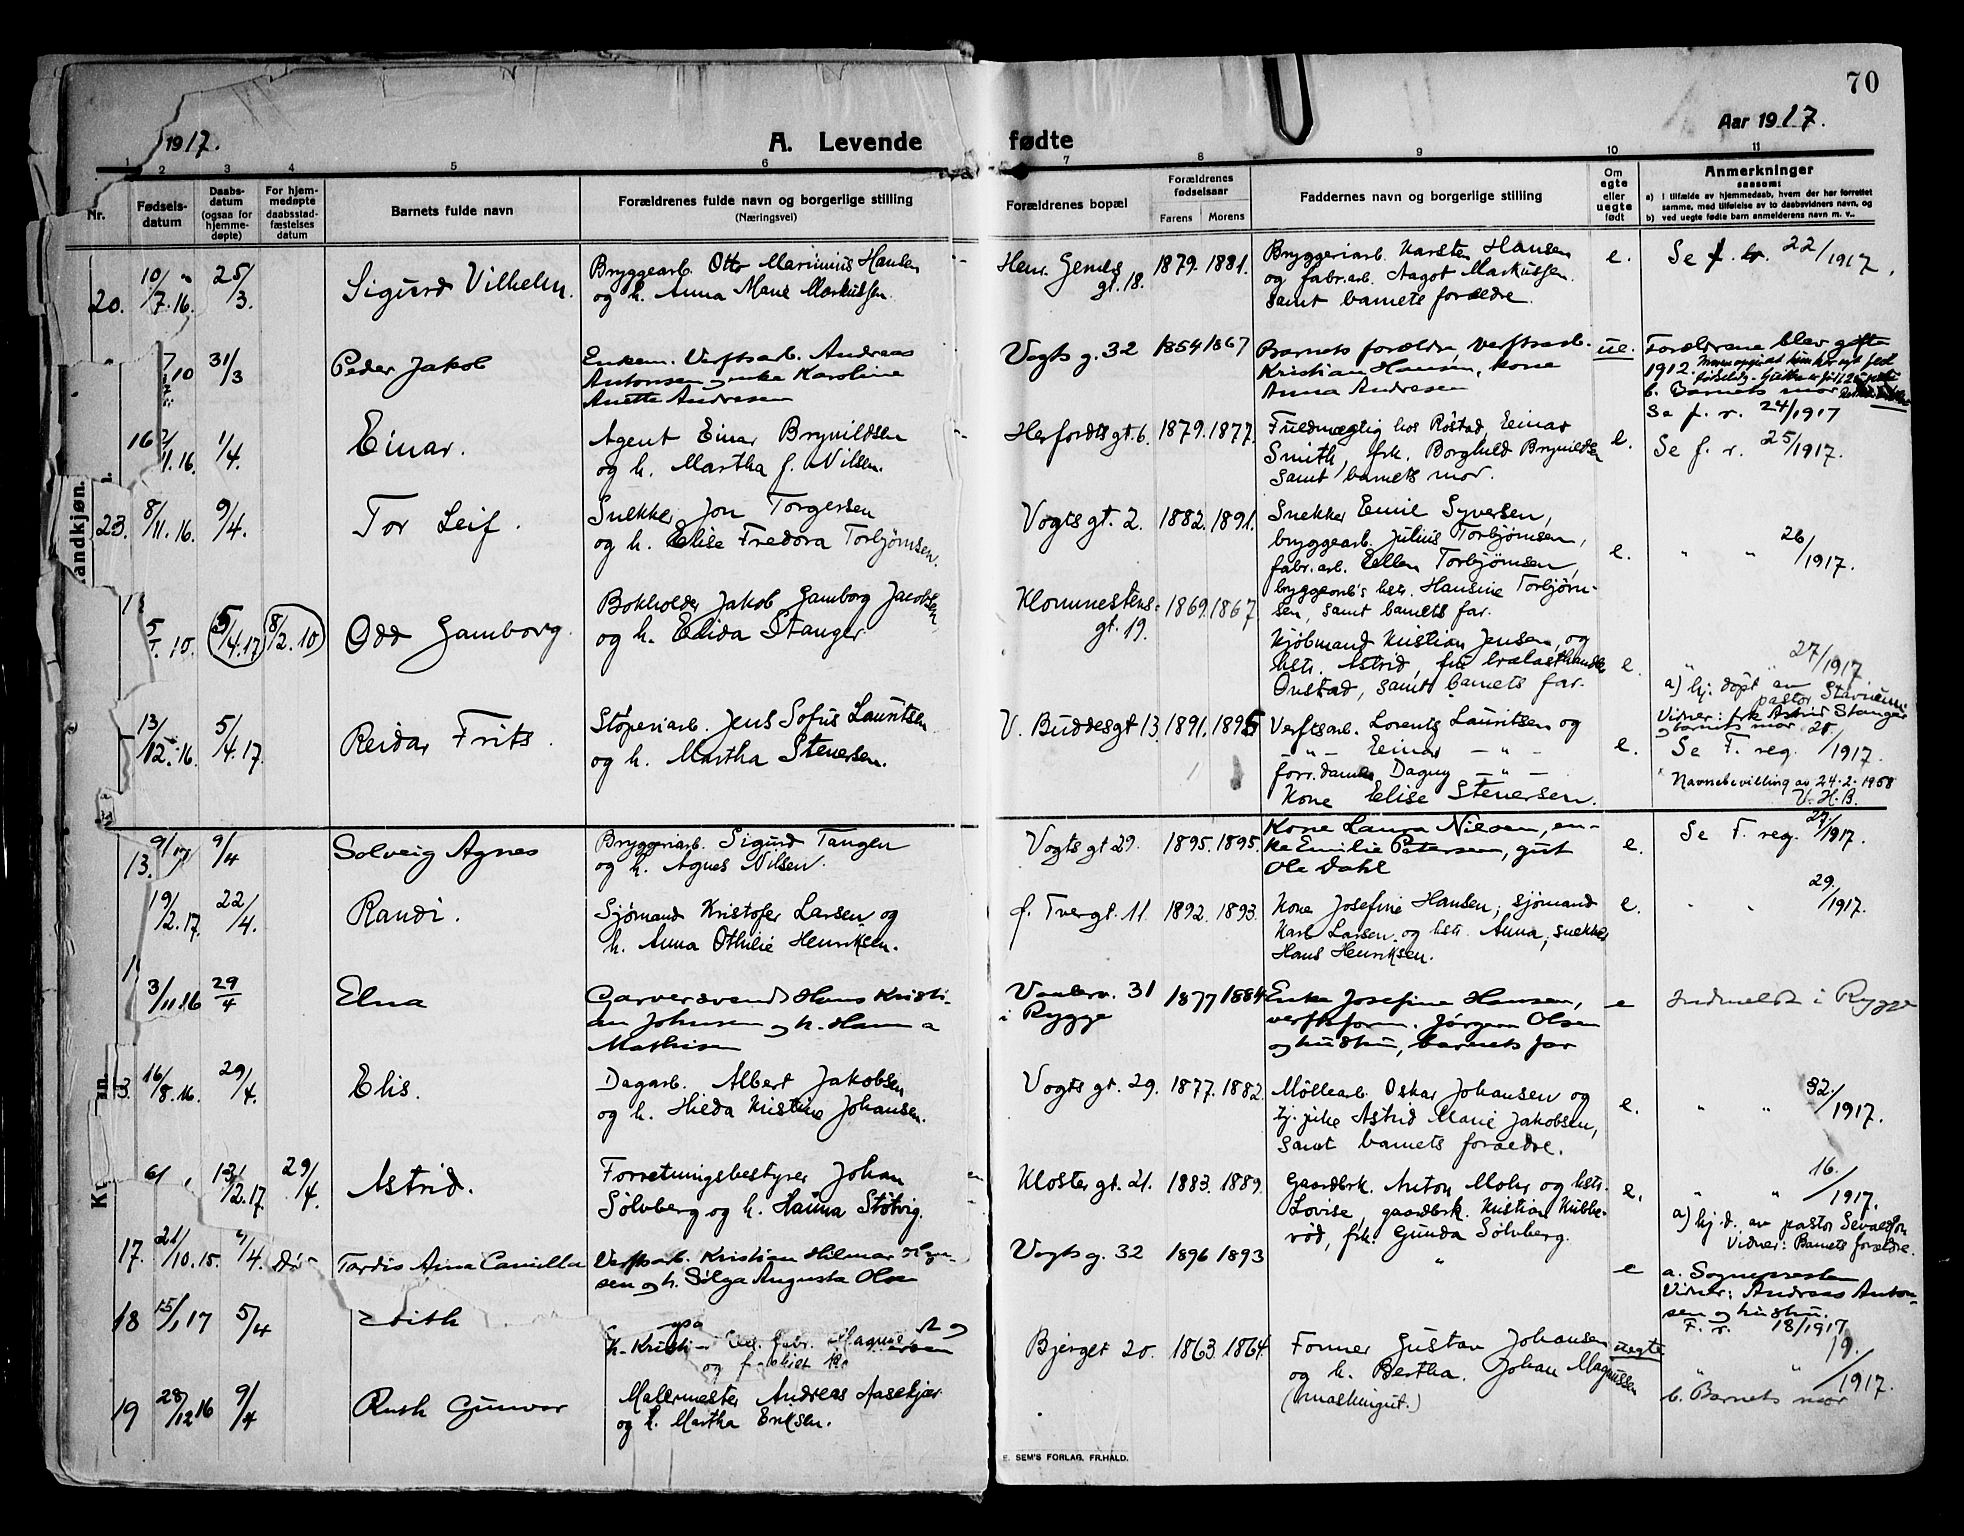 70
1917. A. Levende fødte Aar 1917.
1 2 3 4 5 6 7 8 9 10 11
Nr.
Fødsels-
datum
Daabs-
datum
(ogsaa for
hjemme-
døpte)
For hjem-
medøpte
daabsstad-
fæstelses
datum
Barnets fulde navn
Forældrenes fulde navn og borgerlige stilling
(Næringsvei)
Forældrenes bopæl
Forældrenes
fødselsaar
Farens Morens
Faddernes navn og borgerlige stilling
Om
egte
eller
uegte
født
Anmerkninger
saasom:
a) i tilfælde av hjemmedaab, hvem der har forrettet
samme, med tilføielse av to daabsvidners navn, og
b) ved uegte fødte barn anmelderens navn m. v..
andkjøn.
20. 10/7.16. 25/3. Sigurd Vilhelm.
Bryggearb. Otto Marinius Hansen
og h. Anna Marie Markussen.
Henr. Gerners
gt. 18.
1879. 1881.
Bryggeriarb. Karsten Hansen
og fabr.arb. Aagot Markussen
samt barnets forældre.
e.
Se f. r. 22/1917.
10 31/3 Peder Jakob
Enkem. Verftsarb. Andreas
Antonsen og enke Karoline
Anette Andresen
Vogts g. 32 1854 1867
Barnets forældre, verftsarb.
Kristian Hansen, kone
Anna Andresen
ue.
Forældrene blev gifte
1912.
b. Barnets mor
Se f. r. 24/1917
16 11.16. 1/4. Einar.
Agent Einar Brynildsen
og h. Martha f. Nilsen.
Herfordts gt. 6. 1879. 1877.
Fuldmægtig hos Røstad, Einar
Smith, frk. Borghild Brynildsen
samt barnets mor.
e.
Se f. r. 25/1917.
23. 8/11.16. 9/4. Tor Leif.
Snekker Jon Torgersen
og h. Elise Fredora Torbjørnsen.
Vogts gt. 2. 1882. 1891.
Snekker Emil Syversen,
bryggearb. Julius Torbjørnsen,
fabr.arb. Ellen Torbjørnsen,
bryggearb's hstr. Hansine Torbjørn-
sen, samt barnets far.
e.
" " 26/1917.
5/ .10. 5/4.17 8/2.10 Odd Gamborg.
Bokholder Jakob Gamborg Jacobsen
og h. Elida Stanger.
gt. 19.
1869. 1867
Kjøbmand Kristian Jensen, og
hstr. Astrid, fru trælasthandler
Onstad, samt barnets far.
e.
" " 27/1917
a) hj. døpt av
pastor
Vidner: frk Astrid Stanger
og barnets mor.
13/12.16. 5/4.17. Reidar Frits.
Støperiarb. Jens Sofus Lauritsen
og h. Martha Stenersen.
V. Buddesgt 13. 1891. 1895
Verftsarb. Lorents Lauritsen og
— " — Einar — " —
forr.damen Dagny — " —
Kone Elise Stenersen.
e.
Se F. reg. /1917.
Navnebevilling av 24-2-1958
V. H. B.
13. 9/ 17 9/4 Solveig Agnes
Bryggeriarb. Sigurd Tangen
og h. Agnes Nilsen.
Vogts gt 29. 1895. 1895.
Kone Laura Nilsen, en-
ke Emilie Petersen, gut
Ole Dahl
e.
Se F. reg. 27/1917.
19/2.17. 22/4. Randi.
Sjømand Kristofer Larsen og
h. Anna Othilie Henriksen.
f. Tvergt. 11. 1892. 1893.
Kone Josefine Hansen, sjømand
Karl Larsen og hstr. Anna, snekker
Hans Henriksen.
e.
" " 29./1917.
3/11 16 29/4 Elna
Garversvend Hans Kristi-
an Johnsen og h. Hanna
Mathisen
Vanlerv. 31
i Rygge
1877 1884
Enke Josefine Hansen,
verftsform. Jørgen Olsen
og hustru, barnets far
e
Indmeldt i Rygge
3. 16/8.16. 29/4. Elis.
Dagarb. Albert Jakobsen
og h. Hilda Kristine Johansen.
Vogts gt. 29. 1877. 1882.
Møllearb. Oskar Johansen og
tj.pike Astrid Marie Jakobsen,
samt barnets forældre.
e.
" " 32/1917.
13/2.17 29/4. Astrid.
Forretningsbestyrer Johan
Sølvberg og h. Hanna Støtvig.
Kloster gt. 21. 1883. 1889.
Gaardbrk. Anton Mohr og hstr.
Lovise, gaardbrk. Kristian Kubbe-
rød, frk. Gunda Sølvberg.
e.
" " 16./1917.
a) hj.d. av pastor
Vidner: Barnets forældre.
17. 21/10.15. /4. Tordis Aina Camilla
Verftsarb. Kristian Hilmar
sen og h. Helga Augusta Olsen
Vogts g. 32 1896 1893
"
e
a. Sognepresten
Vidner: Andreas Anton-
sen og hustru.
F. r. 18/1917
18 15/1 17 5/4 Edith
h. Kristi
og
Bjerget 20. 1863. 1864.
Former Gustav Johansen
og h. Bertha. Johan Magnussen
(maskingut.)
uegte
" " 19./1917.
b. Barnets mor
19 28/12 16 9/4 Ruth Gunvor
Malermester Andreas Aasekjær
og h. Martha Eriksen.
E. SEM'S FORLAG, FR.HALD.